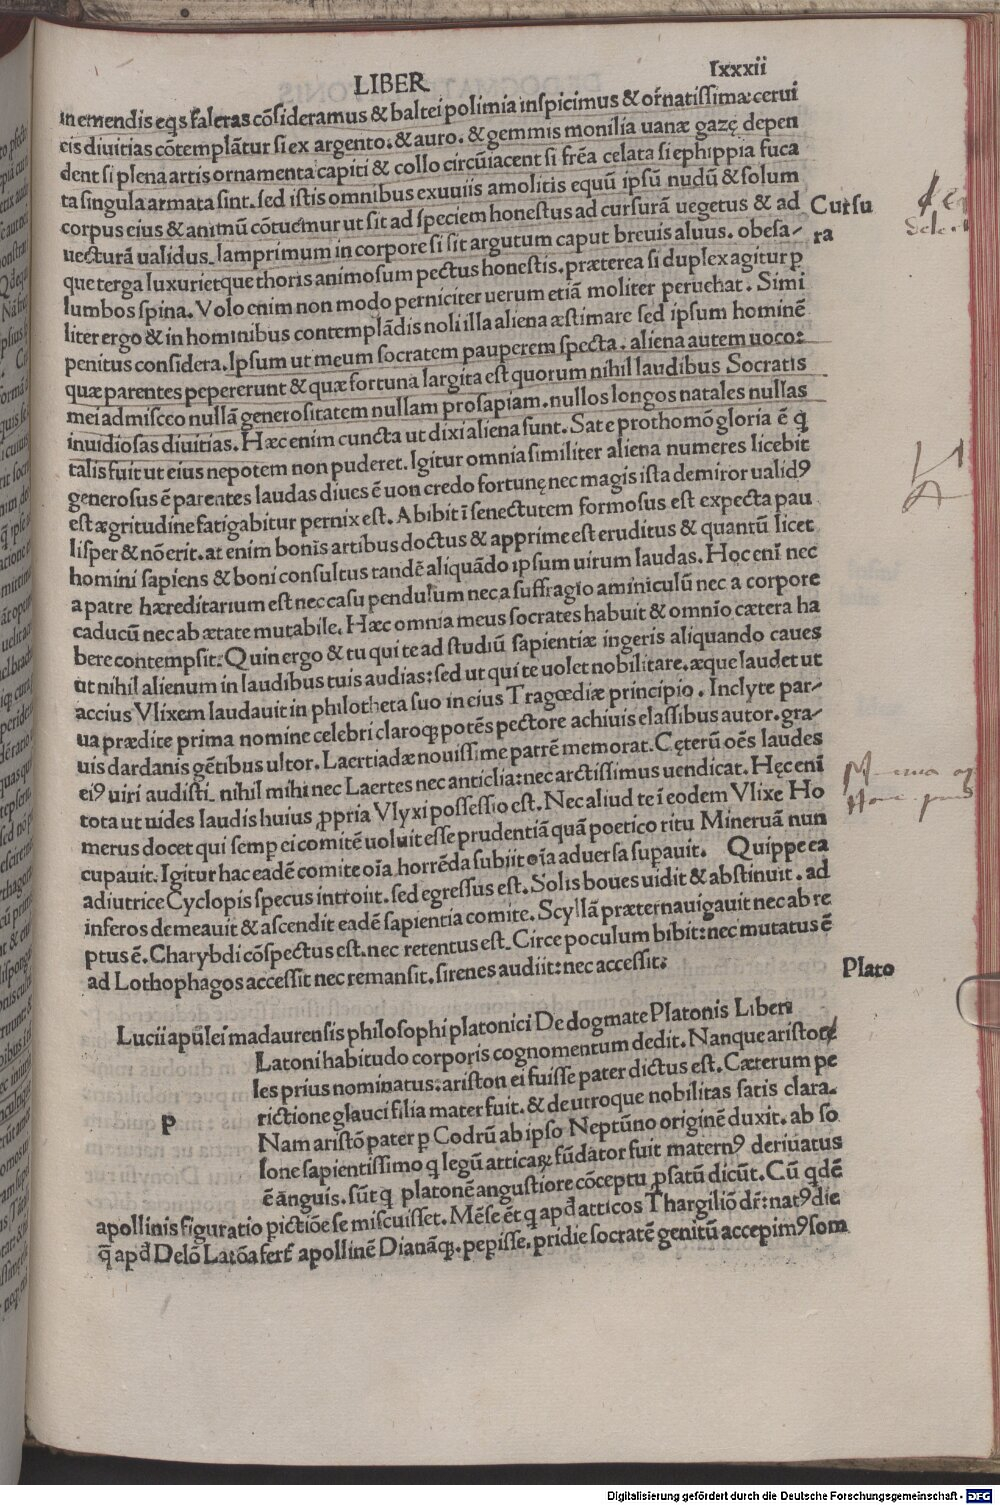 LIBER
lxxxii
in emendis eqs faleras cōsideramus & baltei polimia inspicimus & ornatissimæ cerui
cis diuitias cōtemplātur si ex argento. & auro. & gemmis monilia uanæ gazę depen
dent si plena artis ornamenta capiti & collo circūiacent si frēa celata si ephippia fuca
ta singula armata sint. sed istis omnibus exuuiis amolitis equū ipsū nudū & solum
corpus eius & animū cōtuemur ut sit ad speciem honestus ad cursurā uegetus & ad
uecturā ualidus. Iamprimum in corpore si sit argutum caput breuis aluus. obesa-
que terga luxurietque thoris animosum pectus honestis. præterea si duplex agitur ꝑ
lumbos spina. Volo enim non modo perniciter uerum etiā moliter peruehat. Simi
liter ergo & in hominibus contemplādis noli illa aliena æstimare sed ipsum hominē
penitus considera. Ipsum ut meum socratem pauperem specta. aliena autem uoco:
quæ parentes pepererunt & quæ fortuna largita est quorum nihil laudibus Socratis
mei admisceo nullā generositatem nullam prosapiam. nullos longos natales nullas
inuidiosas diuitias. Hæc enim cuncta ut dixi aliena sunt. Sat e prothomō gloria ē q̄
talis fuit ut eius nepotem non puderet. Igitur omnia similiter aliena numeres licebit
generosus ē parentes laudas diues ē uon credo fortunę nec magis ista demiror ualidꝰ
est ægritudine fatigabitur pernix est. Abibit ī senectutem formosus est expecta pau
lisper & nō erit. at enim bonis artibus doctus & apprime est eruditus & quantū licet
homini sapiens & boni consultus tandē aliquādo ipsum uirum laudas. Hoc enī nec
a patre hæreditarium est nec casu pendulum nec a suffragio aminiculū nec a corpore
caducū nec ab ætate mutabile. Hæc omnia meus socrates habuit & omnio cætera ha
bere contempsit. Quin ergo & tu qui te ad studiū sapientiæ ingeris aliquando caues
ut nihil alienum in laudibus tuis audias: sed ut qui te uolet nobilitare. æque laudet ut
accius Vlixem laudauit in philotheta suo in eius Tragœdiæ principio. Inclyte par-
ua prædite prima nomine celebri claroqꝫ potēs pectore achiuis classibus autor. gra-
uis dardanis gētibus ultor. Laertiadæ nouissime patrē memorat. Cęterū oēs laudes
eiꝰ uiri audisti nihil mihi nec Laertes nec anticlia: nec arctissimus uendicat. Hęc enī
tota ut uides laudis huius ꝓpria Vlyxi possessio est. Nec aliud te ī eodem Vlixe Ho
merus docet qui semꝑ ei comitē uoluit esse prudentiā quā poetico ritu Mineruā nun
cupauit. Igitur hac eadē comite oīa horrēda subiit oīa aduersa suꝑauit. Quippe ea
adiutrice Cyclopis specus introiit. sed egressus est. Solis boues uidit & abstinuit. ad
inferos demeauit & ascendit eadē sapientia comite. Scyllā præternauigauit nec ab re
ptus ē. Charybdi cōspectus est. nec retentus est. Circe poculum bibit: nec mutatus ē
ad Lothophagos accessit nec remansit. sirenes audiit: nec accessit:
Cursu
ra
Plato
Lucii apūlei madaurensis philosophi platonici De dogmate Platonis Liberi
Latoni habitudo corporis cognomentum dedit. Nanque aristote
les prius nominatus: ariston ei fuisse pater dictus est. Cæterum pe
rictione glauci filia mater fuit. & de utroque nobilitas satis clara.
p
Nam aristō pater ꝑ Codrū ab ipso Neptūno originē duxit. ab so
lone sapientissimo q legū atticaꝝ fūdator fuit maternꝰ deriuatus
ē anguis. sūt q platonē angustiore cōceptu ꝓsatū dicūt. Cū qdē
apollinis figuratio pictiōe se miscuisset. Mēse ēt q apd atticos Thargiliō dr: natꝰ die
q̄ apd Delō Latōa fert apollinē Dianāqꝫ. pepisse. pridie socratē genitū accepimꝰ som
Digitalisierung gefördert durch die Deutsche Forschungsgemeinschaft - DFG